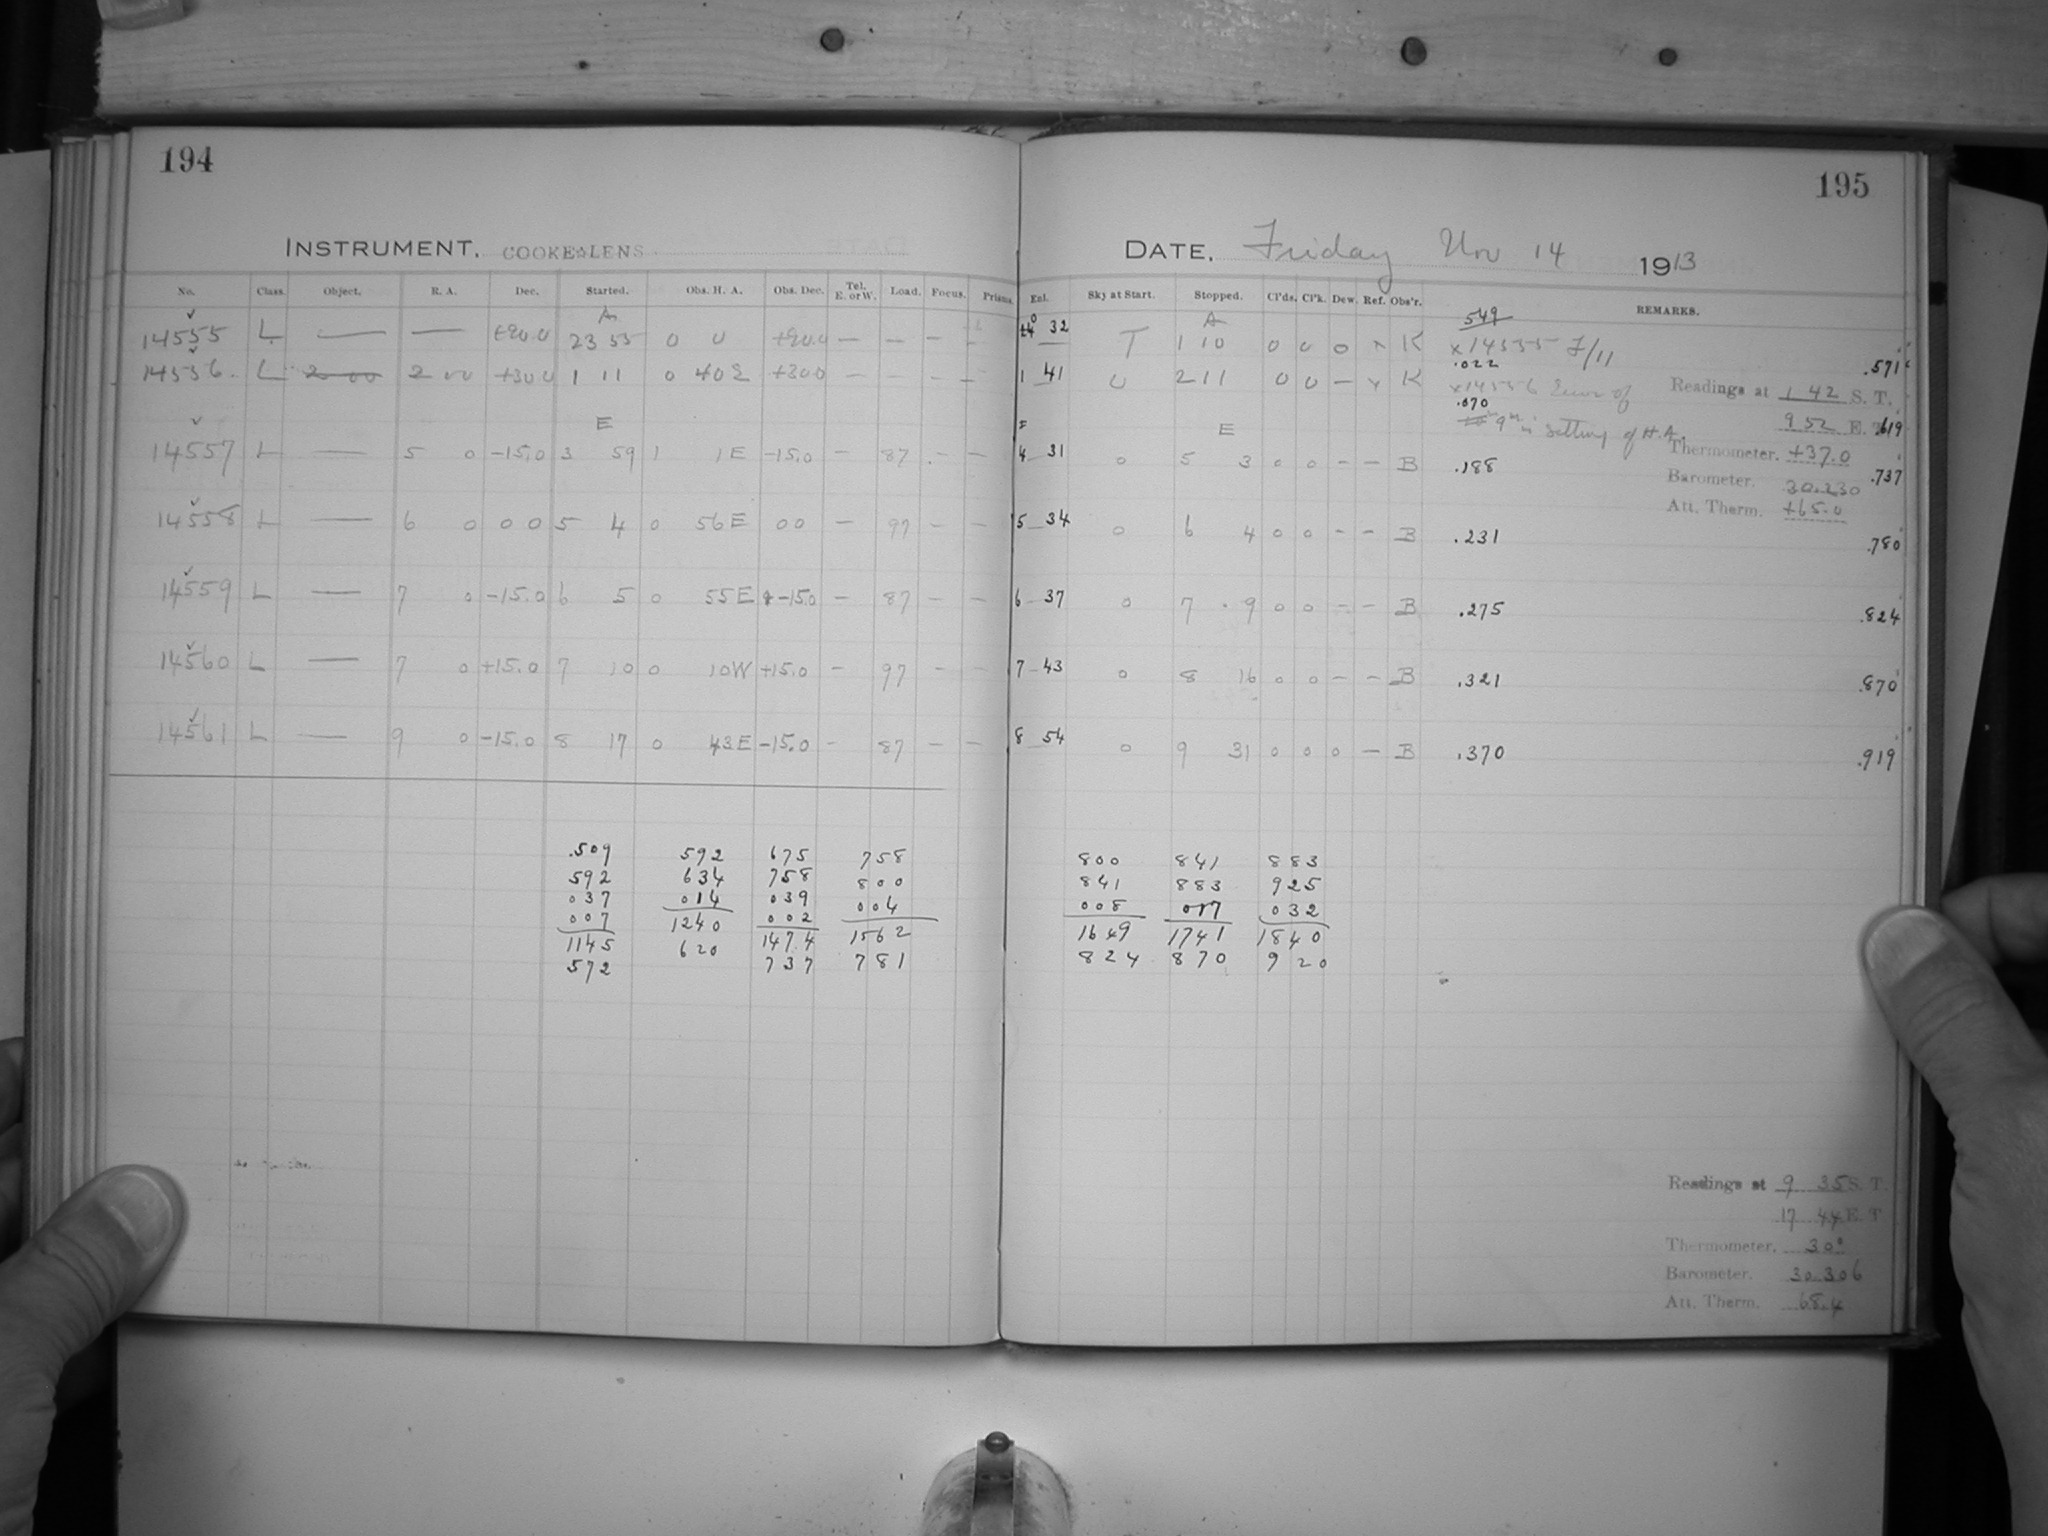 194
195
INSTRUMENT. COOKE LENS
DATE. Friday Nov 14 1913
No. Class. Object. R. A. Dec. Started. Obs. H. A. Obs. Dec. Tel. E. or W. Load. Focus. Prisms. Exl. Sky at Start. Stopped. Cl'ds. Cl'k. Dew. Ref. Obs'r. REMARKS.
549
14555 L — — +90.0 23 55 0 0 +90.0 — — — — 0 32 T 1 10 0 0 0 K x14555 F/11
.022 .571
14556 L 2 00 2 00 +30.0 1 11 0 40 E +30.0 — — — — 1 41 0 2 11 0 0 — K x14556 Error of
Readings at 1 42 S. T.
.070 9 52 E. T. .619
9m in setting of H.A.
Thermometer. +37.0
E E
14557 L — 5 0 -15.0 3 59 1 1 E -15.0 — 87 — — 4 31 0 5 3 0 0 — — B .188 .737
Barometer. 30.230
Att. Therm. +65.0
14558 L — 6 0 0 0 5 4 0 56 E 0 0 — 97 — — 5 34 0 6 4 0 0 — — B .231 .780
14559 L — 7 0 -15.0 6 5 0 55 E -15.0 — 87 — — 6 37 0 7 9 0 0 — — B .275 .824
14560 L — 7 0 +15.0 7 10 0 10 W +15.0 — 97 — — 7 43 0 8 16 0 0 — — B .321 .870
14561 L — 9 0 -15.0 8 17 0 43 E -15.0 — 87 — — 8 54 0 9 31 0 0 0 — B .370 .919
.509 592 675 758 800 841 883
592 634 758 800 841 883 925
037 014 039 004 008 017 032
007 1240 002 1562 1649 1741 1840
1145 620 1474 781 824 870 920
572 737
Readings at 9 35 S. T.
17 44 E. T.
Thermometer. 30°
Barometer. 30.306
Att. Therm. 68.4